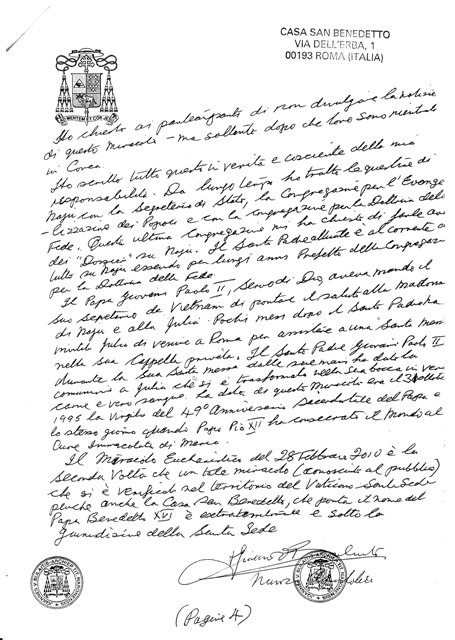 CASA SAN BENEDETTO
VIA DELL'ERBA, 1
00193 ROMA (ITALIA)
Ho chiesto ai partecipanti di non divulgare la notizia
di questo miracolo - ma soltanto dopo che loro sono rientrati
in Corea.
Ho scritto tutto questo in verità e cosciente della mia
responsabilità. Da lungo tempo ho trattato la questione di
Naju con la Segreteria di Stato, la Congregazione per l'Evange
lizzazione dei Popoli e con la Congregazione per la Dottrina della
Fede. Questa ultima Congregazione mi ha chiesto di fare
dei "Dossier" su Naju. Il Santo Padre attuale è al corrente
tutto su Naju essendo per lunghi anni Prefetto della Congregaz
per la Dottrina della Fede.
Il Papa Giovanni Paolo II, servo di Dio, aveva mandato il
suo segretario da Vietnam di portare il saluto alla Madonna
di Naju e alla Julia. Pochi mesi dopo il Santo Padre ha
invitato Julia di venire a Roma per assistere a una Santa Messa
nella sua Cappella privata. Il Santo Padre Giovanni Paolo II
durante la Sua Santa Messa dalle sue mani ha dato la
comunione a Julia che si è trasformata nella Sua bocca in vera
carne e vero sangue. La data di questo Miracolo era il 31 ottobre
1995 la Vigilia del 49° Anniversario Sacerdotale del Papa e
lo stesso giorno quando Papa Pio XII ha consacrato il Mondo al
Cuore Immacolato di Maria.
Il Miracolo Eucharistico del 28 Febbraio 2010 è la
seconda Volta che un tale miracolo (conosciuto al pubblico)
che si è verificato nel territorio del Vaticano Santa Sede
perchè anche la Casa San Benedetto, che porta il nome del
Papa Benedetto XVI è extraterritoriale e sotto la
Giurisdizione della Santa Sede
(Pagina 4)